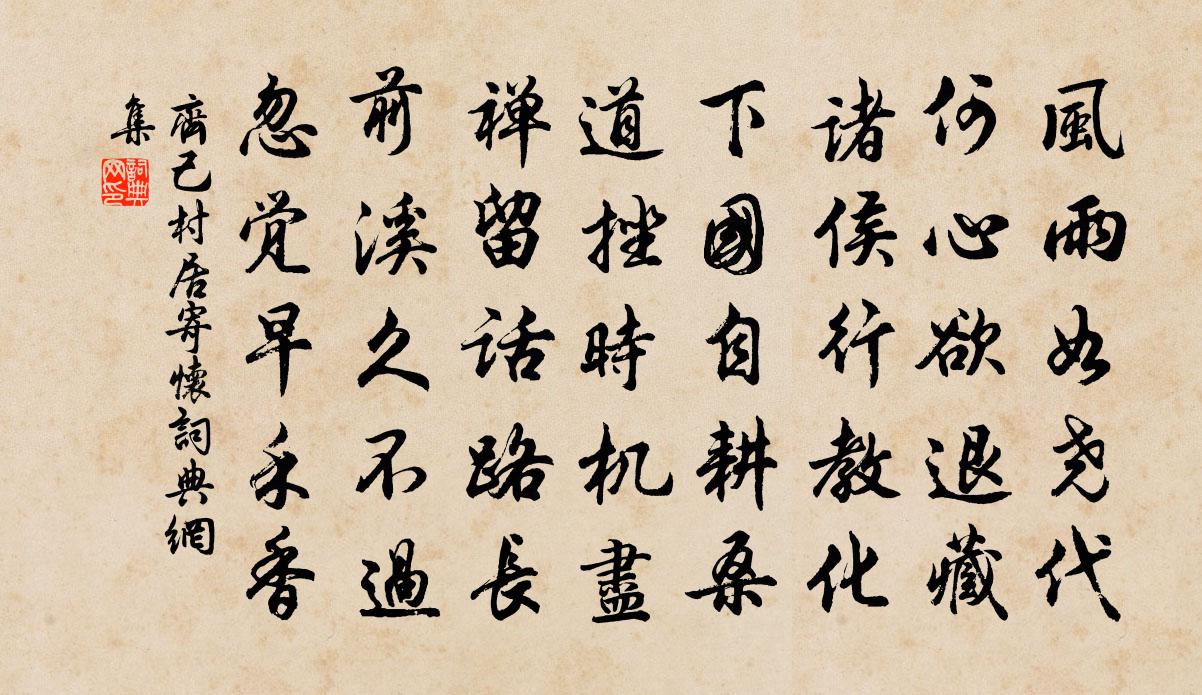 風雨如尭代
何心欲退藏
諸侯行教化
下國自耕桑
道挫時机盡
禅留話路長
前溪久不過
忽覚早禾香
齊己村居寄懷詞典網
集
詞典
网印